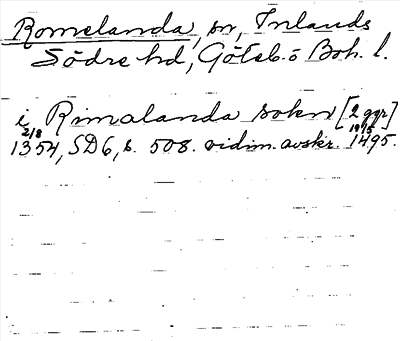 Romelanda, sn, Inlands
Södre hd, Göteb. o Boh. l.
i Rimalanda sokn [2 ggr]
2/8 19/5
1354, SD6, s. 508. vidim. avskr. 1495.